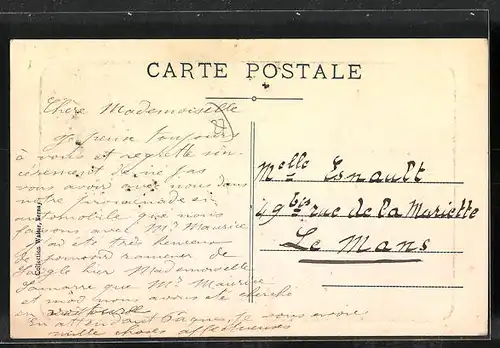 CARTE POSTALE
Chère Mademoiselle
je pense toujours
à vous et regrette sin-
cèrement de ne pas
vous avoir avec nous dans
notre promenade en
automobile que nous
faisons avec Mr Maurice
J'ai été très heureux
de pouvoir ramener de
hier Mademoiselle
que Mr Maurice
et moi nous avons été cherché
en
En attendant Pâques, je vous envoie
mille choses affectueuses
Melle Esnault
49 bis rue de la Mariette
Le Mans
Collection Walter,